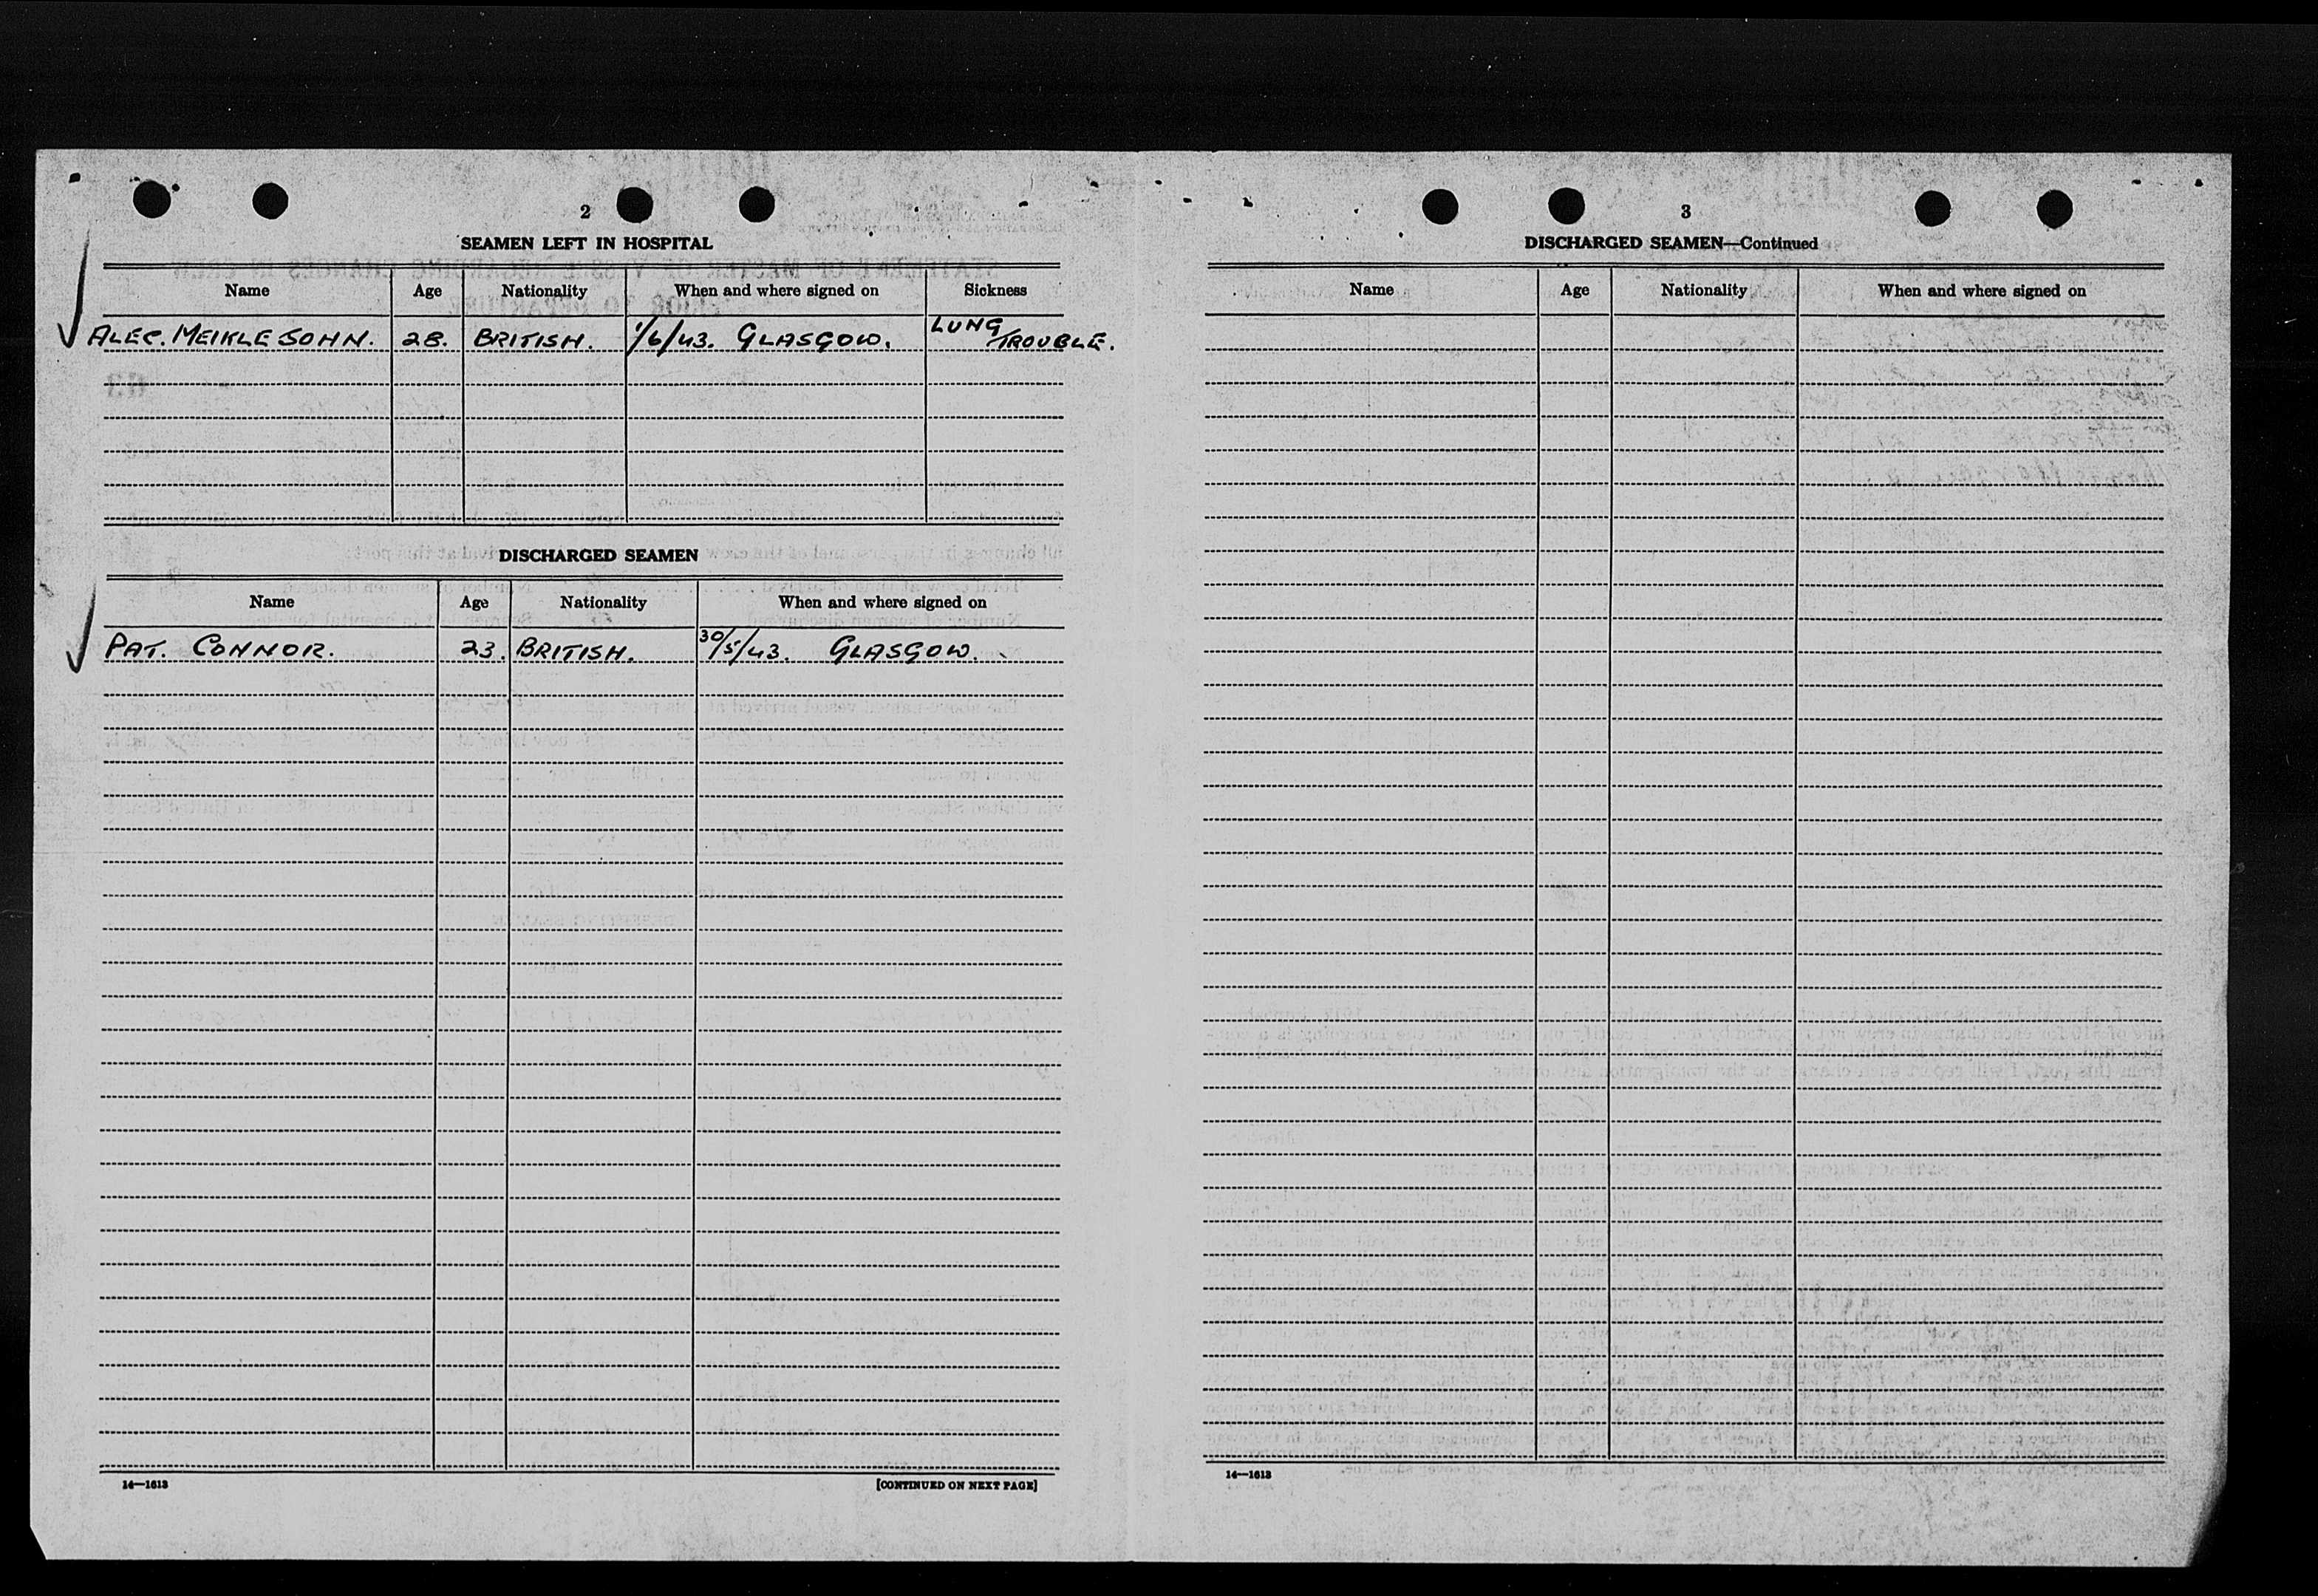 2
SEAMEN LEFT IN HOSPITAL
Name Age Nationality When and where signed on Sickness
ALEC. MEIKLE JOHN. 28. BRITISH. 1/6/43. GLASGOW. LUNG TROUBLE.
DISCHARGED SEAMEN
Name Age Nationality When and where signed on
PAT. CONNOR. 23. BRITISH. 30/5/43. GLASGOW.
14—1613
[CONTINUED ON NEXT PAGE]
3
DISCHARGED SEAMEN—Continued
Name Age Nationality When and where signed on
14—1613